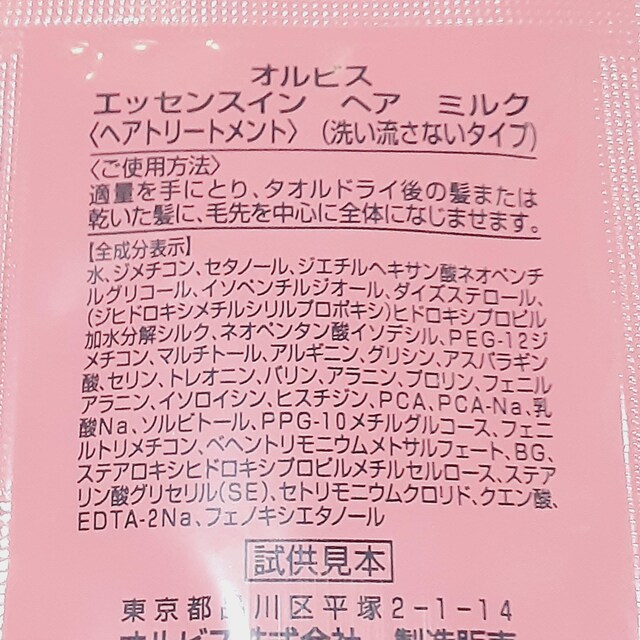 オルビス
エッセンスイン ヘア ミルク
〈ヘアトリートメント〉(洗い流さないタイプ)
〈ご使用方法〉
適量を手にとり、タオルドライ後の髪または
乾いた髪に、毛先を中心に全体になじませます。
【全成分表示】
水、ジメチコン、セタノール、ジエチルヘキサン酸ネオペンチ
ルグリコール、イソペンチルジオール、ダイズステロール、
(ジヒドロキシメチルシリルプロポキシ)ヒドロキシプロピル
加水分解シルク、ネオペンタン酸イソデシル、PEG-12ジ
メチコン、マルチトール、アルギニン、グリシン、アスパラギン
酸、セリン、トレオニン、バリン、アラニン、プロリン、フェニル
アラニン、イソロイシン、ヒスチジン、PCA、PCA-Na、乳
酸Na、ソルビトール、PPG-10メチルグルコース、フェニ
ルトリメチコン、ベヘントリモニウムメトサルフェート、BG、
ステアロキシヒドロキシプロピルメチルセルロース、ステア
リン酸グリセリル(SE)、セトリモニウムクロリド、クエン酸、
EDTA-2Na、フェノキシエタノール
試供見本
東京都品川区平塚2-1-14
オルビス株式会社 製造販売